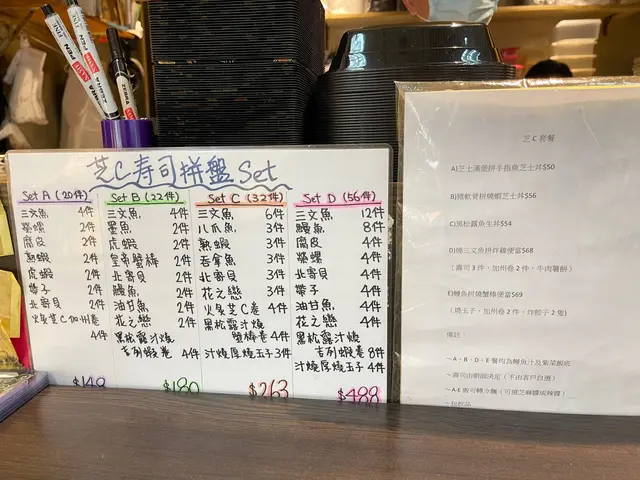 芝C寿司拼盤 Set
Set A (20件)
三文魚 4件
翡螺 2件
腐皮 2件
熟蝦 2件
虎蝦 2件
帶子 2件
北寄貝 2件
火炙芝C加州卷
4件
$148
Set B (22件)
三文魚 4件
墨魚 2件
虎蝦 2件
皇帝蟹棒 2件
北寄貝 2件
鰻魚 2件
油甘魚 2件
花之戀 2件
黑松露汁燒
吉列蝦卷 4件
$180
Set C (32件)
三文魚 6件
八爪魚 3件
熟蝦 3件
吞拿魚 3件
北寄貝 3件
花之戀 3件
火炙芝C卷 4件
黑松露汁燒
蟹棒卷 4件
汁燒厚燒玉子 3件
$263
Set D (56件)
三文魚 12件
鰻魚 8件
腐皮 4件
翡螺 4件
北寄貝 4件
帶子 4件
油甘魚 4件
花之戀 4件
黑松露汁燒
吉列蝦卷 8件
汁燒厚燒玉子 4件
$488
芝C套餐
A)芝士漢堡拼手指魚芝士丼$50
B)豬軟骨拼燒蝦芝士丼$56
C)黑松露魚生丼$54
D)燒三文魚拼炸雞便當$68
(壽司3件，加州卷2件，牛肉薯餅)
E)鰻魚拼燒蟹棒便當$69
(燒玉子，加州卷2件，炸餃子2隻)
備註：
~A、B、D、E餐均為鰻魚汁及紫菜飯底
~壽司由廚師決定（不由客戶自選）
~A-E飯可轉冷麵（可搭芝麻醬或辣醬）